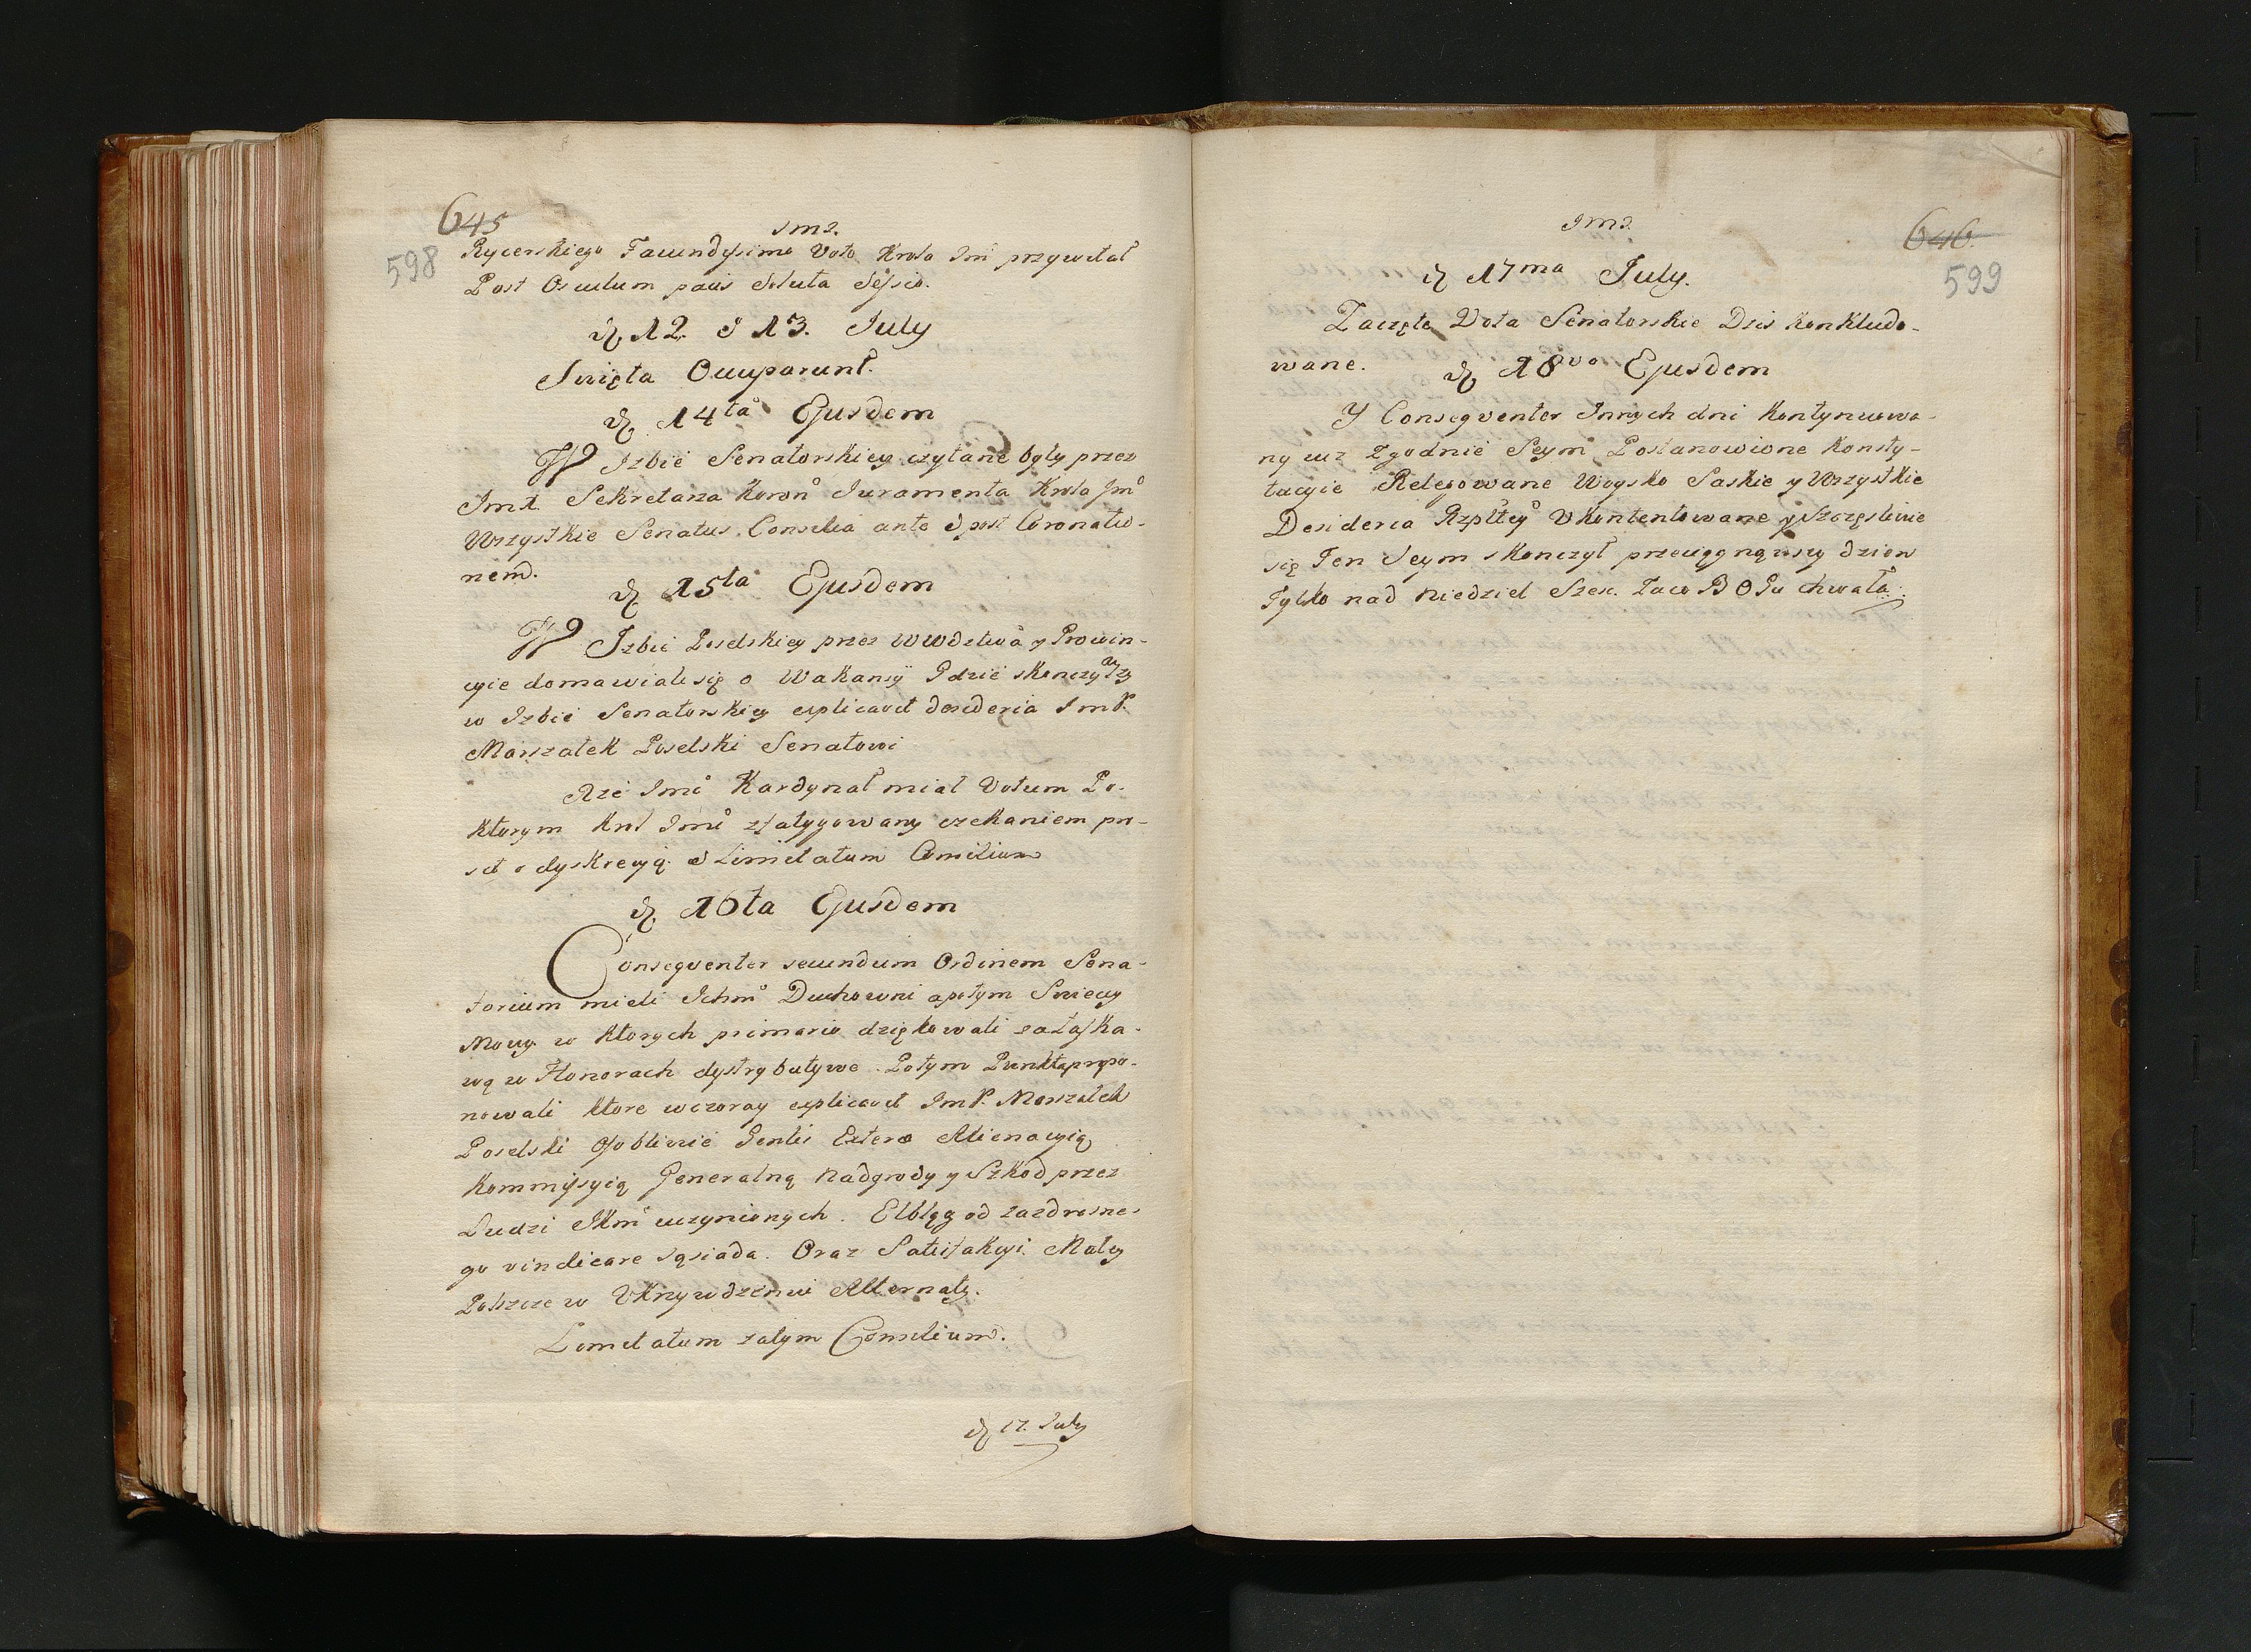 645
598
Jms.
Rycerskiego Facundissimo Voto Krola Jmi przywitał
Post Osculum pacis Soluta Sessio.
d. 12. & 13. July
Swięta Occuparunt.
d. 14ta Ejusdem
W Jzbie Senatorskiey czytane były przez
Jmx. Sekretarza Koron Juramenta Krola Jm
Wszystkie Senatus Consilia ante & post Coronatio-
nem.
d. 15ta Ejusdem
W Jzbie Poselskiey przez Wwdztwa y Prowin-
cyie domawiali się o Wakansy Gdzie skonczywszy
w Jzbie Senatorskiey explicavit desideria JmP.
Marszałek Poselski Senatowi
Xże Jmć Kardynał miał Votum Po-
ktorym Krol Jmć zfatygowany czekaniem pro-
sił o dyskrecyą & Limitatum Consilium
d. 16ta Ejusdem
Conseqventer secundum Ordinem Sena-
torium mieli Jchm Duchowni apotym Swieccy
Mowy w ktorych primario dziękowali za Łaska-
wą w Honorach dystrybutywe. Potym Punkta propo-
nowali ktore wczoray explicavit JmP. Marszałek
Poselski Osobliwie Gentis Exteræ Alienacyią
Kommissyią Generalną Nadgrody y Szkod przez
Ludzi JKm uczynionych. Elbląg od zazdrosne-
go vindicare sąsiada. Oraz Satisfakcyi Małey
Polszcze w Ukrzywdzeniu Alternaty.
Limitatum zatym Consilium.
d. 17. July
Jms.
646.
599
d. 17ma July.
Zaczęte Vota Senatorskie Dzis konkludo-
wane.
d. 18vo Ejusdem
Y Conseqventer Jnnych dni Kontynuowa-
ny Zgodnie Seym Postanowione Konsty-
tucyie Relegowane Woysko Saskie y Wszystkie
Desideria Rzpltey Vkontentowane y Szczęsliwie
się Ten Seym skonczył przeciągnąwszy dzien
Tylko nad Niedziel Szesc. Zaco BOGu chwała.